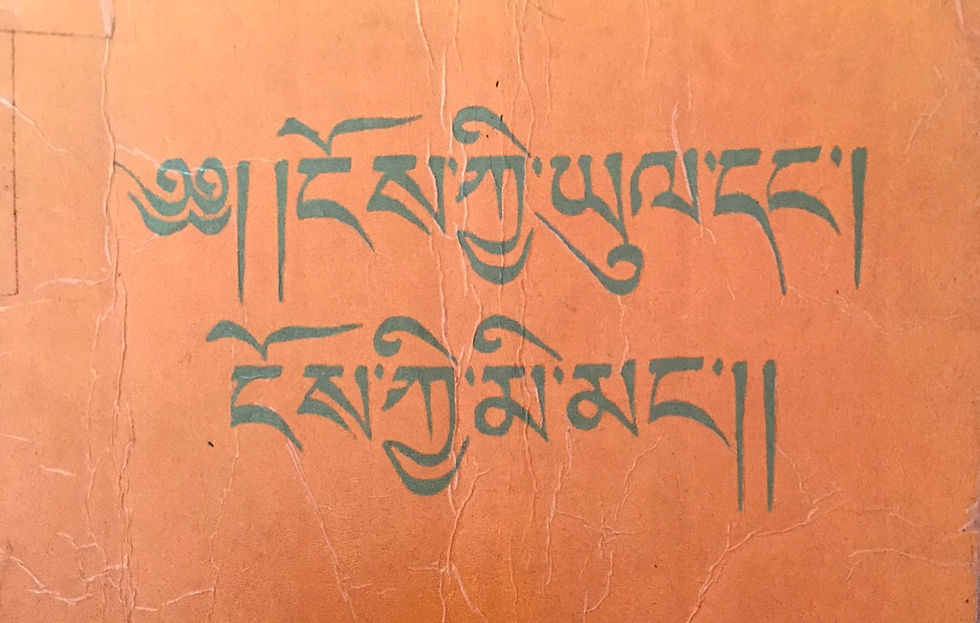 ༄༅། །ངོས་ཀྱི་ཡུལ་དང་།
ངོས་ཀྱི་མི་མང་།།